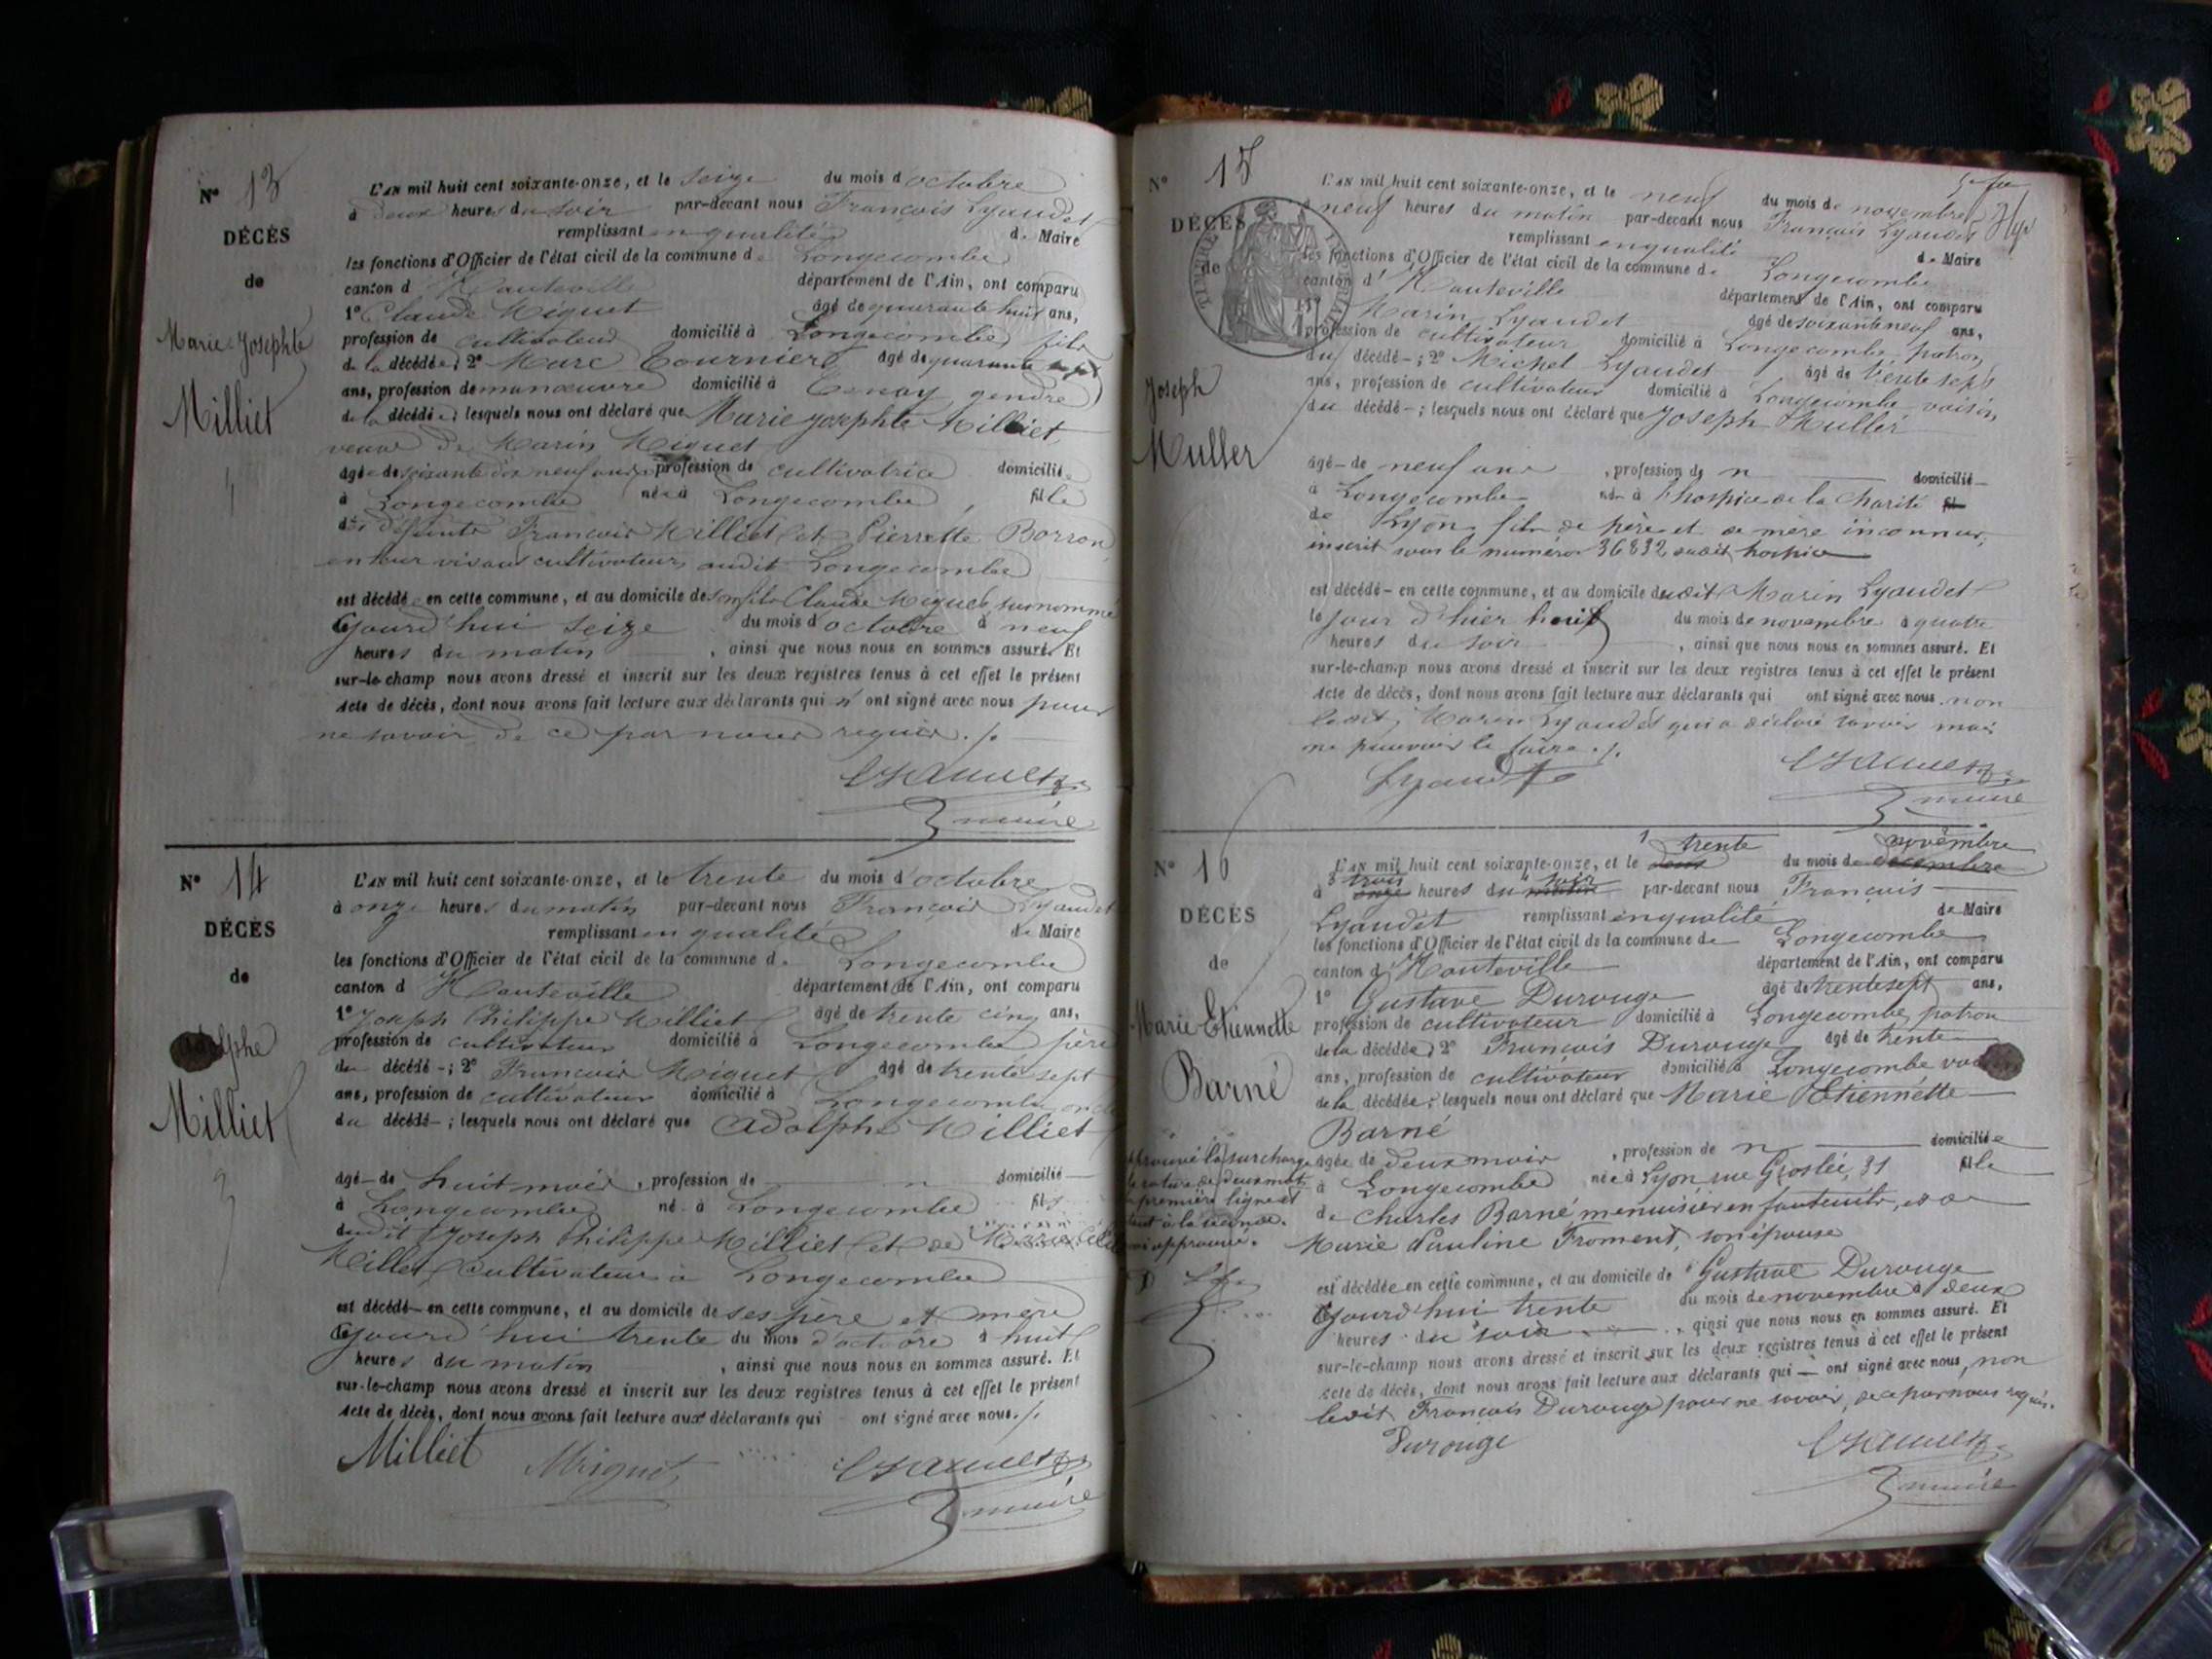 N° 13
DÉCÈS
de
Marie-Josephte
Milliet
L'AN mil huit cent soixante-onze, et le seize du mois d'octobre
à deux heures du soir par-devant nous François Lyaudet
remplissant en qualité de Maire
les fonctions d'Officier de l'état civil de la commune de Longecombe
canton d'Hauteville département de l'Ain, ont comparu
1° Claude Miguet âgé de quarante huit ans,
profession de cultivateur domicilié à Longecombe, fils
de la décédée; 2° Marc Tournier âgé de quarante
ans, profession de manœuvre domicilié à Tenay, gendre
de la décédée; lesquels nous ont déclaré que Marie Josephte Milliet,
veuve de Marin Miguet
âgée de soixante dix neuf ans, profession de cultivatrice domiciliée
à Longecombe née à Longecombe, fille
des défunts François Milliet et Pierrette Borron
en leur vivant cultivateurs audit Longecombe
est décédée en cette commune, et au domicile de son fils Claude Miguet, surnommé
cejourd'hui seize du mois d'octobre à neuf
heures du matin, ainsi que nous nous en sommes assuré. Et
sur-le-champ nous avons dressé et inscrit sur les deux registres tenus à cet effet le présent
Acte de décès, dont nous avons fait lecture aux déclarants qui n'ont signé avec nous pour
ne savoir, de ce par nous requis ./.
maire
N° 14
DÉCÈS
de
Adolphe
Milliet
L'AN mil huit cent soixante-onze, et le trente du mois d'octobre
à onze heures du matin par-devant nous François Lyaudet
remplissant en qualité de Maire
les fonctions d'Officier de l'état civil de la commune de Longecombe
canton d'Hauteville département de l'Ain, ont comparu
1° Joseph Philippe Milliet âgé de trente cinq ans,
profession de cultivateur domicilié à Longecombe père
du décédé; 2° François Miguet âgé de trente sept
ans, profession de cultivateur domicilié à Longecombe, oncle
du décédé; lesquels nous ont déclaré que Adolphe Milliet
âgé de huit mois, profession de n domicilié
à Longecombe né à Longecombe fils
dudit Joseph Philippe Milliet et de Marie
Millet, cultivateurs à Longecombe
est décédé en cette commune, et au domicile de ses père et mère
cejourd'hui trente du mois d'octobre à huit
heures du matin, ainsi que nous nous en sommes assuré. Et
sur-le-champ nous avons dressé et inscrit sur les deux registres tenus à cet effet le présent
Acte de décès, dont nous avons fait lecture aux déclarants qui ont signé avec nous ./.
Milliet Miguet
maire
N° 15
DÉCÈS
de
Joseph
Muller
L'AN mil huit cent soixante-onze, et le neuf du mois de novembre
neuf heures du matin par-devant nous François Lyaudet
remplissant en qualité de Maire
les fonctions d'Officier de l'état civil de la commune de Longecombe
canton d'Hauteville département de l'Ain, ont comparu
1° Marin Lyaudet âgé de soixante neuf ans,
profession de cultivateur domicilié à Longecombe, patron
du décédé; 2° Michel Lyaudet âgé de trente sept
ans, profession de cultivateur domicilié à Longecombe, voisin,
du décédé; lesquels nous ont déclaré que Joseph Muller
âgé de neuf ans, profession de n domicilié
à Longecombe né à l'hospice de la Charité fil
de Lyon, fils de père et de mère inconnus,
inscrit sous le numéro 36832 dudit hospice
est décédé en cette commune, et au domicile dudit Marin Lyaudet
le jour d'hier huit du mois de novembre à quatre
heures du soir, ainsi que nous nous en sommes assuré. Et
sur-le-champ nous avons dressé et inscrit sur les deux registres tenus à cet effet le présent
Acte de décès, dont nous avons fait lecture aux déclarants qui ont signé avec nous, non
ledit, Marin Lyaudet qui a déclaré savoir mais
ne pouvoir le faire ./.
Lyaudet
maire
N° 16
DÉCÈS
de
Marie Etiennette
Barné
trente novembre
L'AN mil huit cent soixante-onze, et le deux du mois de décembre
trois soir
à onze heures du matin par-devant nous François
Lyaudet remplissant en qualité de Maire
les fonctions d'Officier de l'état civil de la commune de Longecombe
canton d'Hauteville département de l'Ain, ont comparu
1° Gustave Durouge âgé de trente sept ans,
profession de cultivateur domicilié à Longecombe, patron
de la décédée; 2° François Durouge âgé de trente
ans, profession de cultivateur domicilié à Longecombe
de la décédée; lesquels nous ont déclaré que Marie Etiennette
Barné
âgée de deux mois, profession de n domiciliée
à Longecombe née à Lyon rue Groslée, 31 fille
de Charles Barné, menuisier en fauteuils, et de
Marie Pauline Froment, son épouse
est décédée en cette commune, et au domicile de Gustave Durouge
cejourd'hui trente du mois de novembre à deux
heures du soir, ainsi que nous nous en sommes assuré. Et
sur-le-champ nous avons dressé et inscrit sur les deux registres tenus à cet effet le présent
acte de décès, dont nous avons fait lecture aux déclarants qui ont signé avec nous, non
ledit François Durouge pour ne savoir, de ce par nous requis.
Durouge
maire